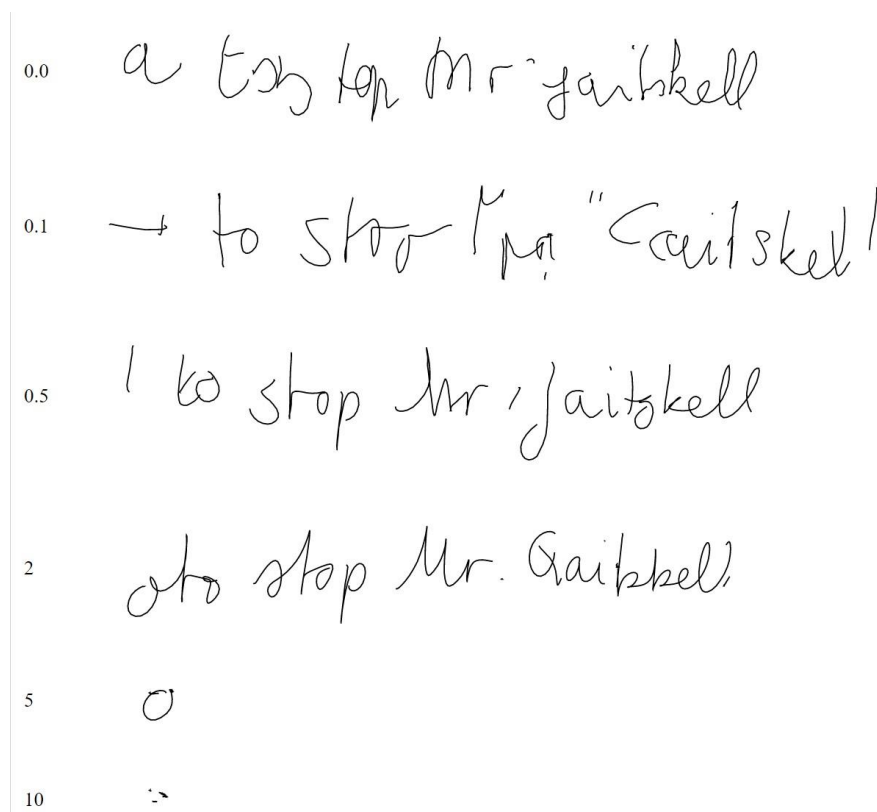 0.0 a top Mr. gaitskell
0.1 to stop "Gaitskell
0.5 to stop Mr. Gaitskell
2 to stop Mr. Gaitskell
5
10